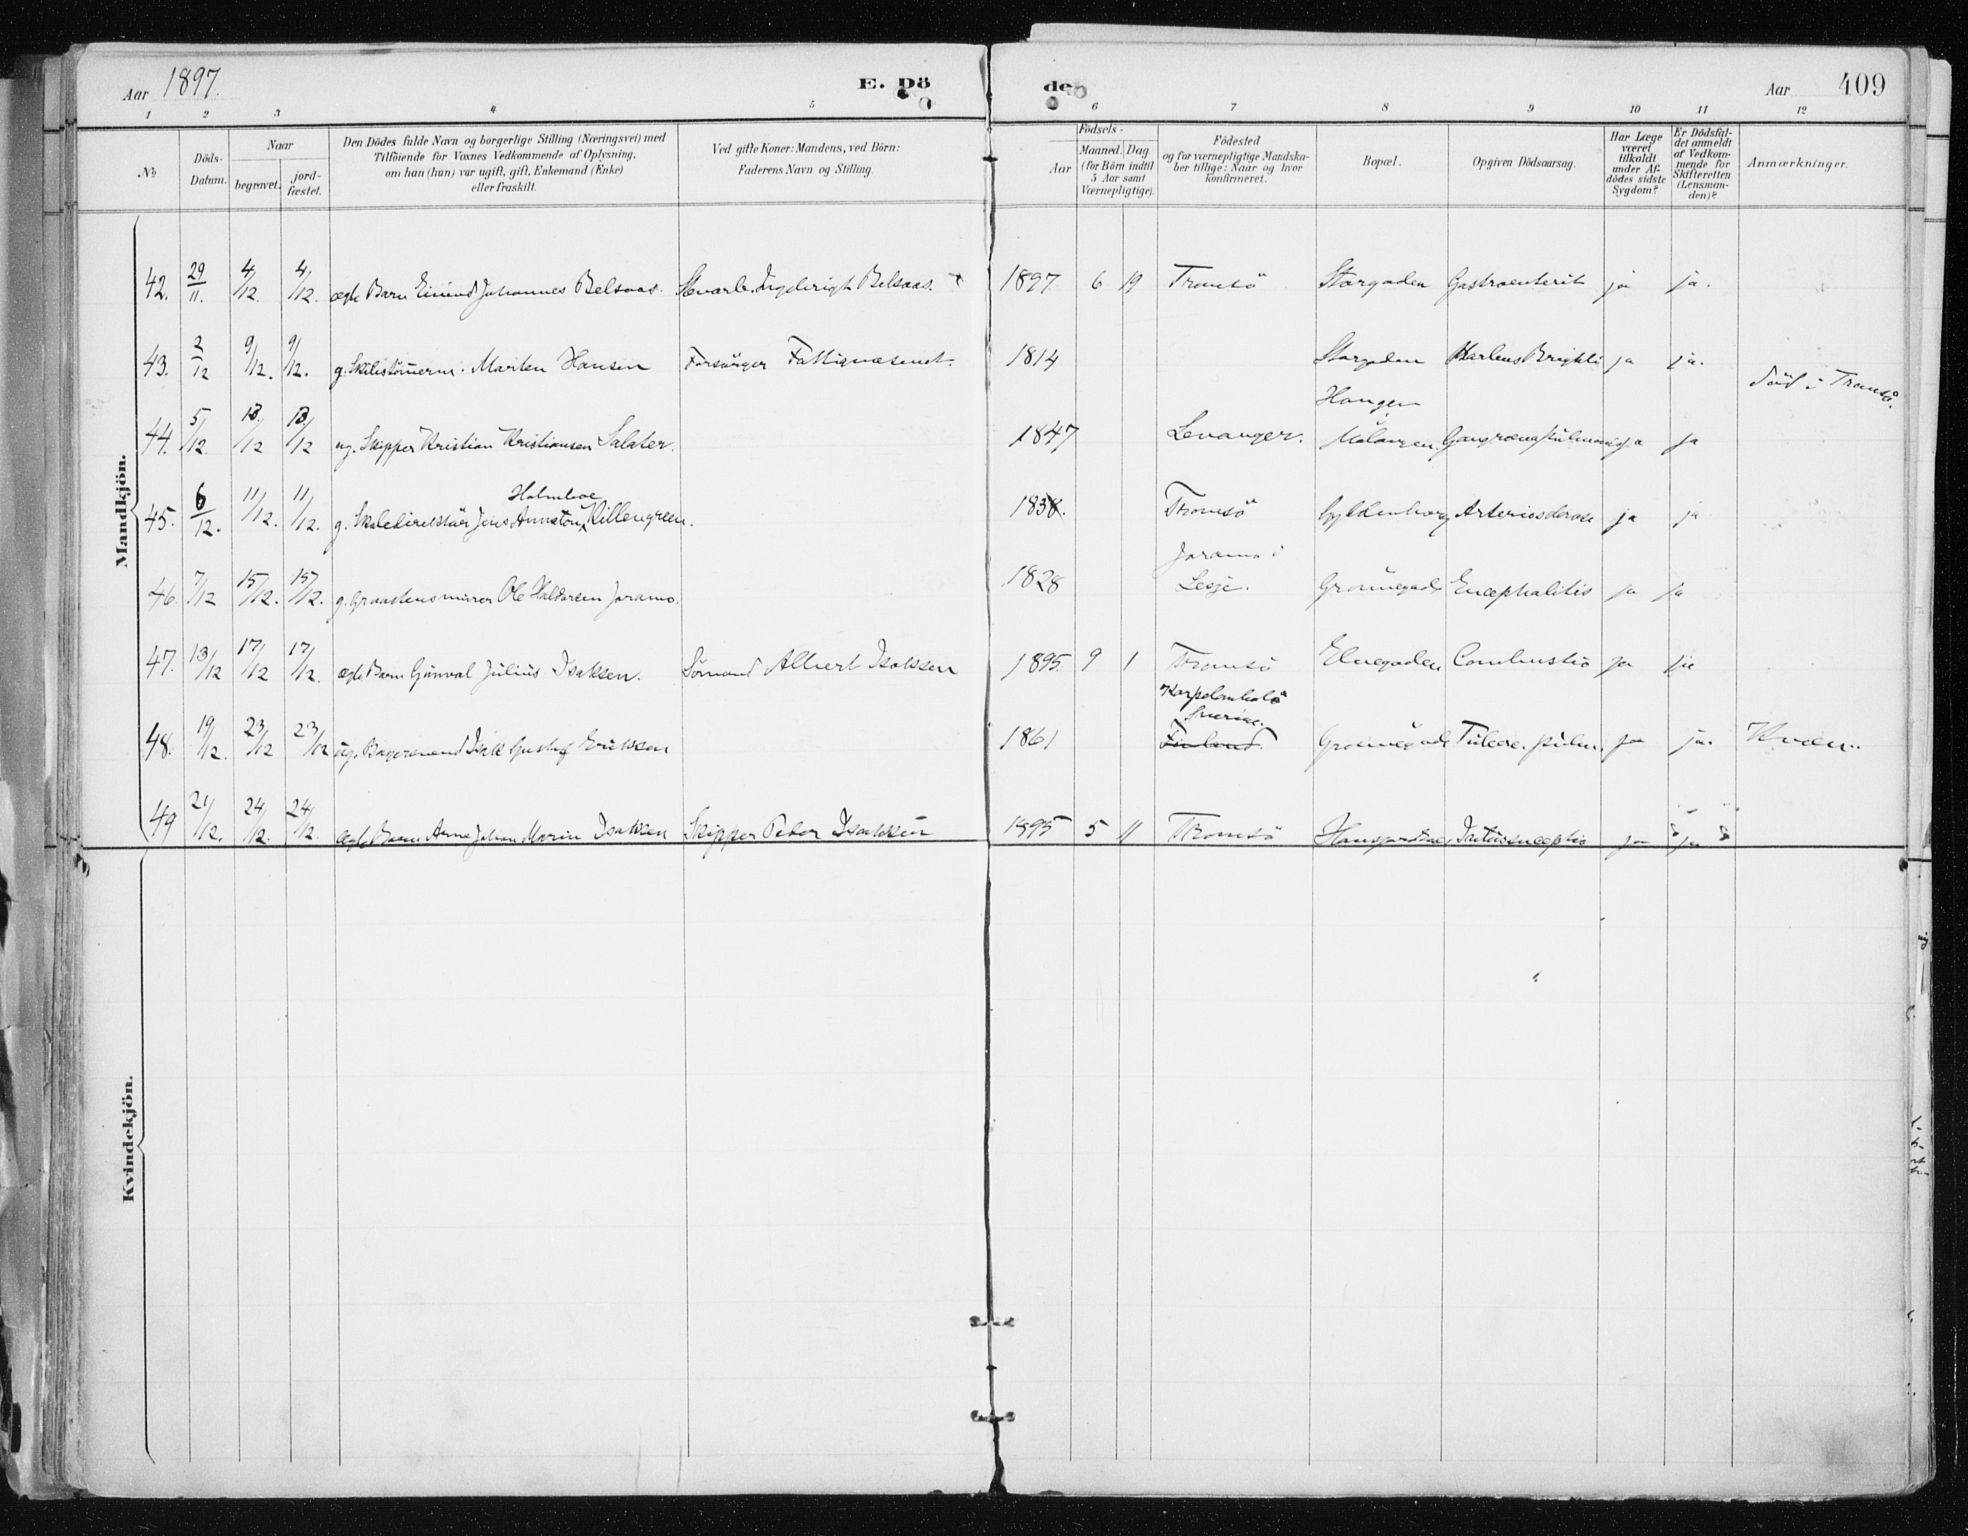 Aar 1897.
E. Dö
de
Aar 409
1 2 3 4 5 6 7 8 9 10 11 12
№
Döds-Datum.
Naar
begravet.
jord-fæstet.
Den Dödes fulde Navn og borgerlige Stilling (Næringsvei) med
Tilföiende for Voxnes Vedkommende af Oplysning,
om han (hun) var ugift, gift, Enkemand (Enke)
eller fraskilt.
Ved gifte Koner: Mandens, ved Börn:
Faderens Navn og Stilling.
Födsels-
Aar
Maaned. Dag
(for Börn indtil
5 Aar samt
Værnepligtige).
Födested
og for værnepligtige Mandska-
ber tillige: Naar og hvor
konfirmeret.
Bopæl.
Opgiven Dödsaarsag.
Har Læge
været
tilkaldt
under Af-
dödes sidste
Sygdom?
Er Dödsfal-
det anmeldt
af Vedkom-
mende for
Skifteretten
(Lensman-
den)?
Anmærkninger.
Mandkjön.
42. 29/11. 4/12. 4/12. ægte Barn Eivind Johannes Belsaas. Belsaas. 1897 6 19 Tromsö Storgaden Gastroenterit ja ja.
43. 2/12 9/12. 9/12. g. Morten Hansen Forsörger Fattigvæsenet. 1814 Storgaden Morbus Brightii ja ja.
död i Tromsö.
44. 5/12. 13/12 13/12 ug. Skipper Kristian Kristiansen Salater. 1847 Levanger. Malangen. Gangræna pulmonis ja ja
Holmboe
45. 6/12. 11/12. 11/12. g. Skoledirektör Jens Killengreen. 1838. Tromsö Gyldenborg Arteriosclerose ja ja
Joramo i
46. 7/12 15/12. 15/12. g. Graastensmurer Ole Haldorsen Joramo. 1828 Lesje. Grönnegade Encephalitis ja ja
47. 13/12 17/12 17/12. ægte Barn Gunval Julius Isaksen. Sömand Albert Isaksen 1895. 9 1 Tromsö Elvegaden Combustio ja ja
Sverige.
48. 19/12. 23/12 23/12 ug. Bagersvend Isak Gustaf Eriksson 1861 Finland. Grönnegade Tuberc. pulm. ja ja. Kvæn.
49 21/12. 24/12. 24/12. ægte Barn Arne Johan Marin Isaksen Skipper Peder Isaksen 1895 5 11 Tromsö ja ja
Kvindekjön.